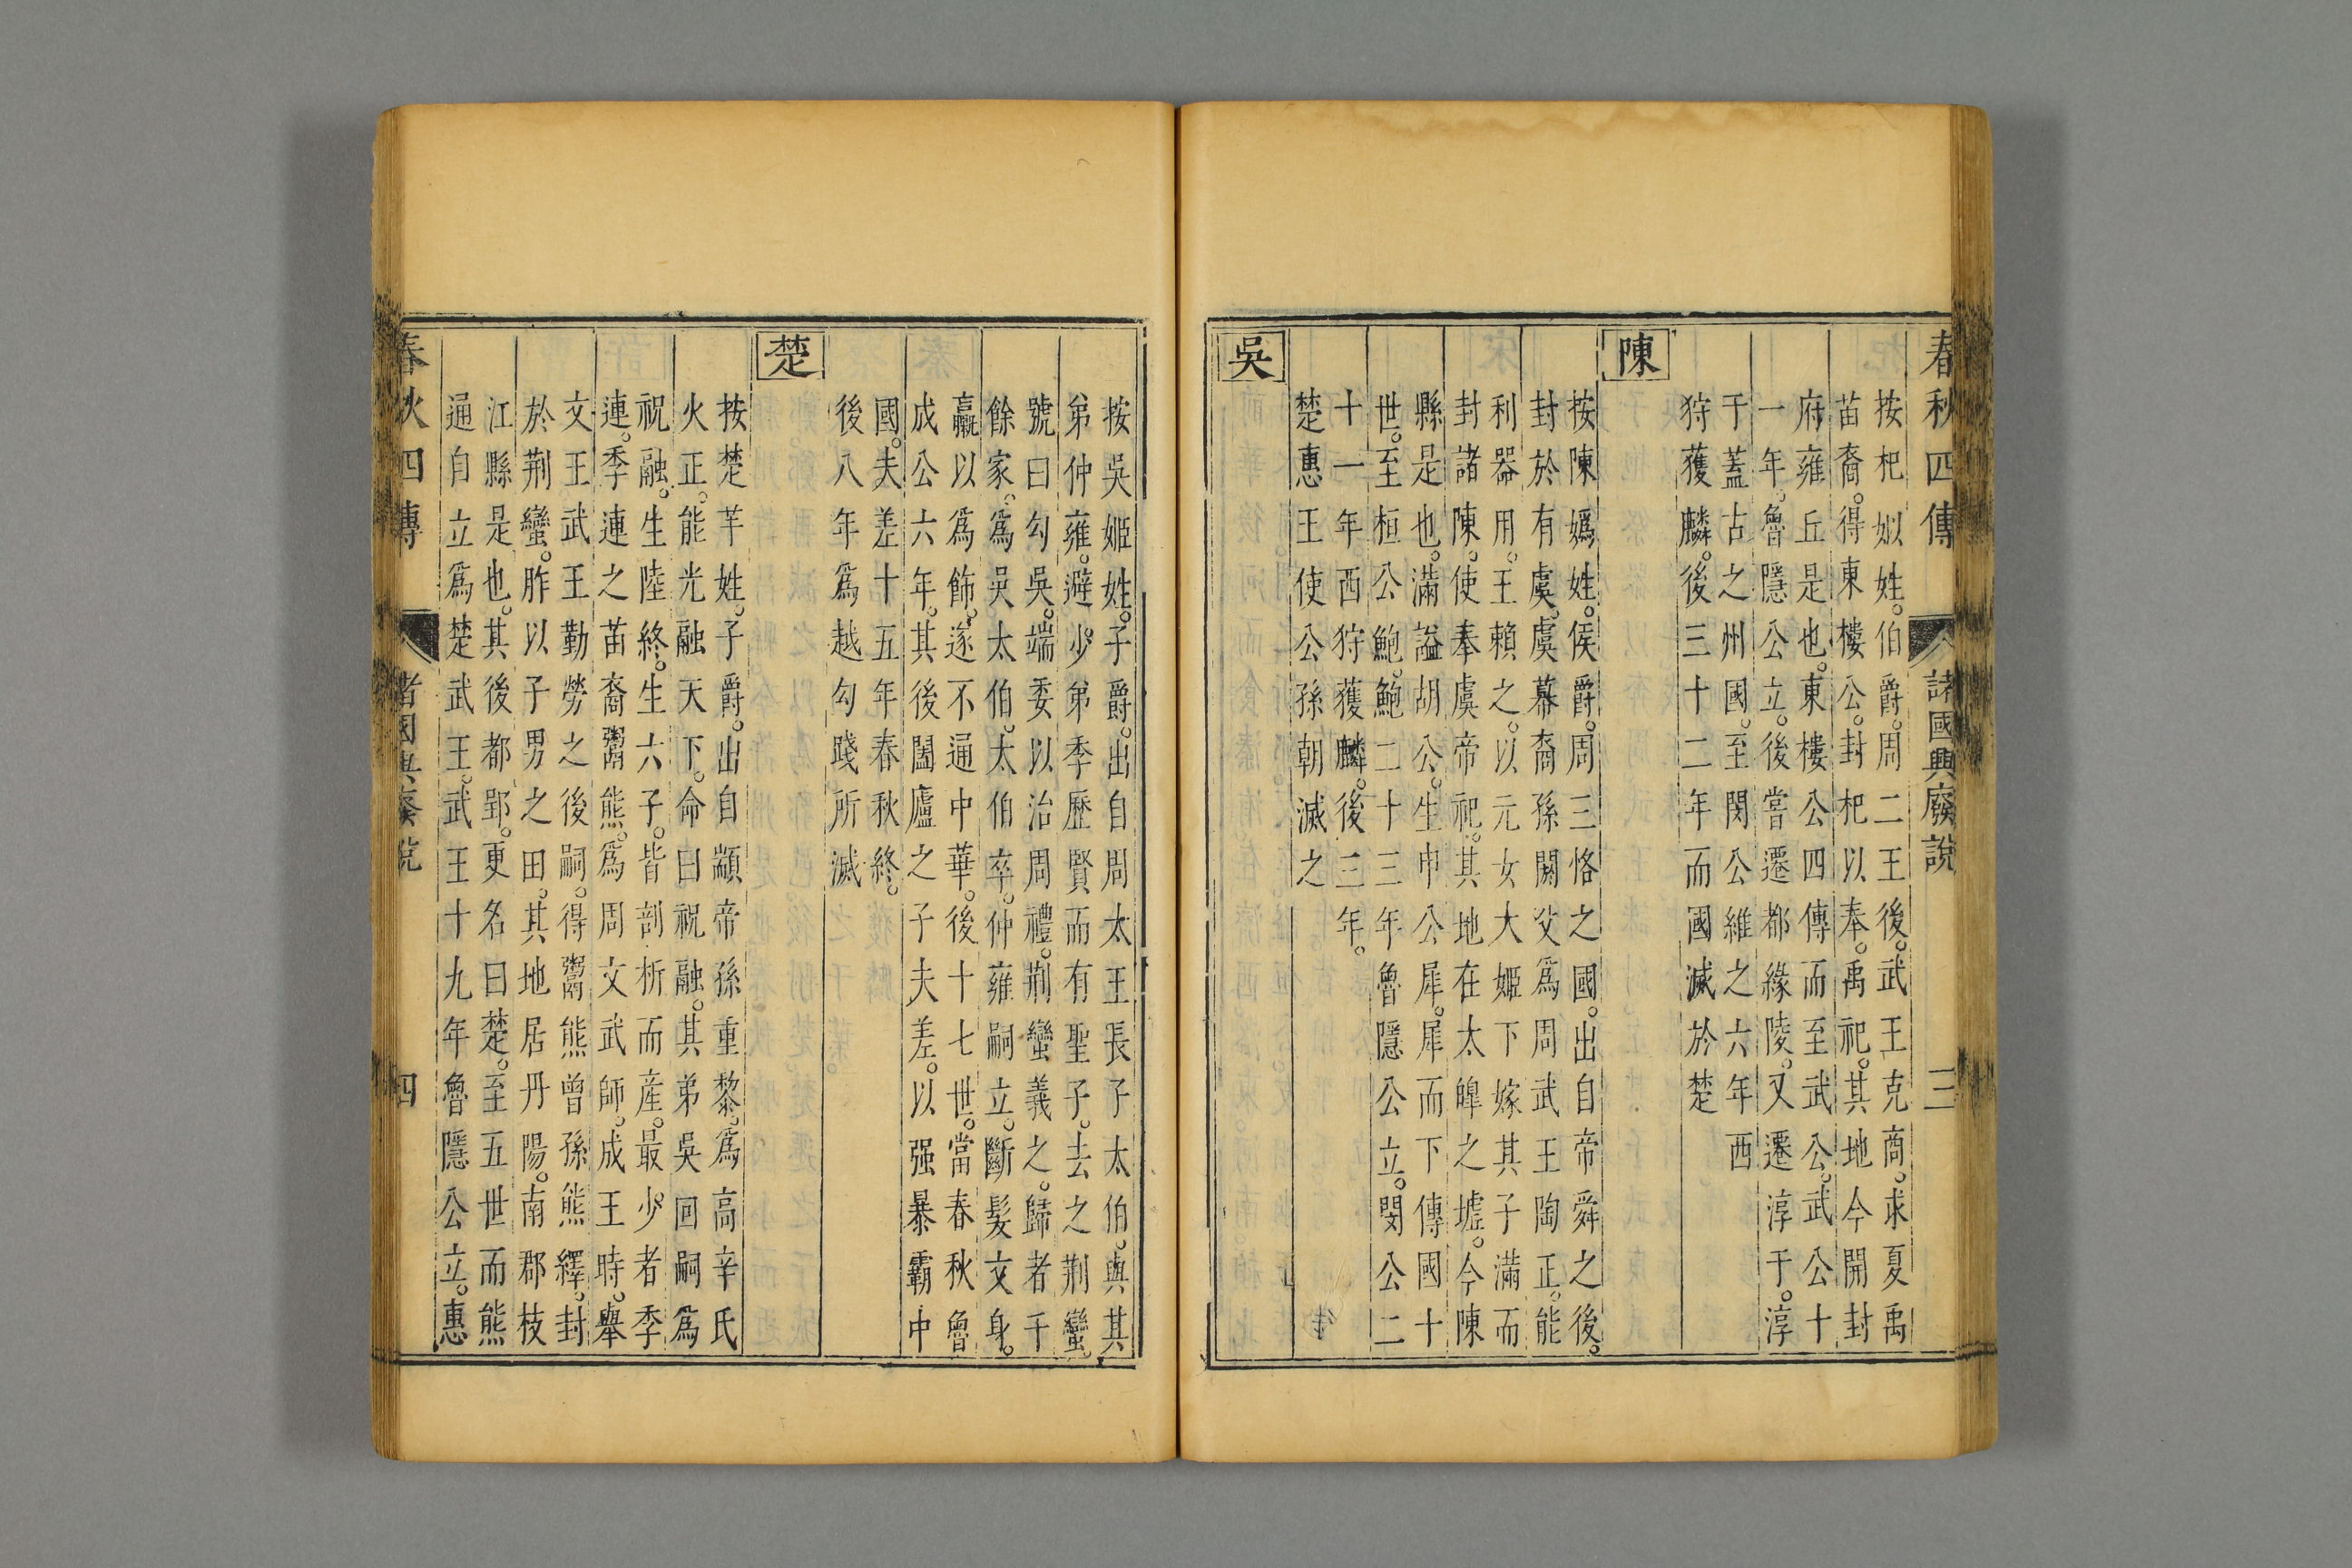 春秋四傳 諸國興廢說 三
按杞姒姓。伯爵。周二王後。武王克商。求夏禹
苗裔。得東樓公。封杞以奉。禹祀。其地今開封
府雍丘是也。東樓公四傳而至武公。武公十
一年。魯隱公立。後嘗遷都緣陵。又遷淳于。淳
于蓋古之州國。至閔公維之六年西
狩獲麟。後三十二年而國滅於楚
陳
按陳嬀姓。侯爵。周三恪之國。出自帝舜之後。
封於有虞。虞幕裔孫閼父爲周武王陶正。能
利器用。王賴之。以元女大姬下嫁其子滿而
封諸陳。使奉虞帝祀。其地在太皥之墟。今陳
縣是也。滿謚胡公。生申公犀。犀而下傳國十
世。至桓公鮑。鮑二十三年魯隱公立。閔公二
十一年西狩獲麟。後三年。
楚惠王使公孫朝滅之
吳
按吳姬姓。子爵。出自周太王長子太伯。與其
弟仲雍。避少弟季歷賢而有聖子。去之荆蠻。
號曰勾吳。端委以治周禮。荆蠻義之。歸者千
餘家。爲吳太伯。太伯卒。仲雍嗣立。斷髮文身。
贏以爲飾。遂不通中華。後十七世。當春秋魯
成公六年。其後闔廬之子夫差。以强暴霸中
國。夫差十五年春秋終。
後八年爲越勾踐所滅
楚
按楚羋姓。子爵。出自顓帝孫重黎。爲高辛氏
火正。能光融天下。命曰祝融。其弟吳回嗣爲
祝融。生陸終。生六子。皆剖析而產。最少者季
連。季連之苗裔鬻熊。爲周文武師。成王時。舉
文王武王勤勞之後嗣。得鬻熊曾孫熊繹。封
於荆蠻。胙以子男之田。其地居丹陽。南郡枝
江縣是也。其後都郢。更名曰楚。至五世而熊
通自立爲楚武王。武王十九年魯隱公立。惠
春秋四傳 四